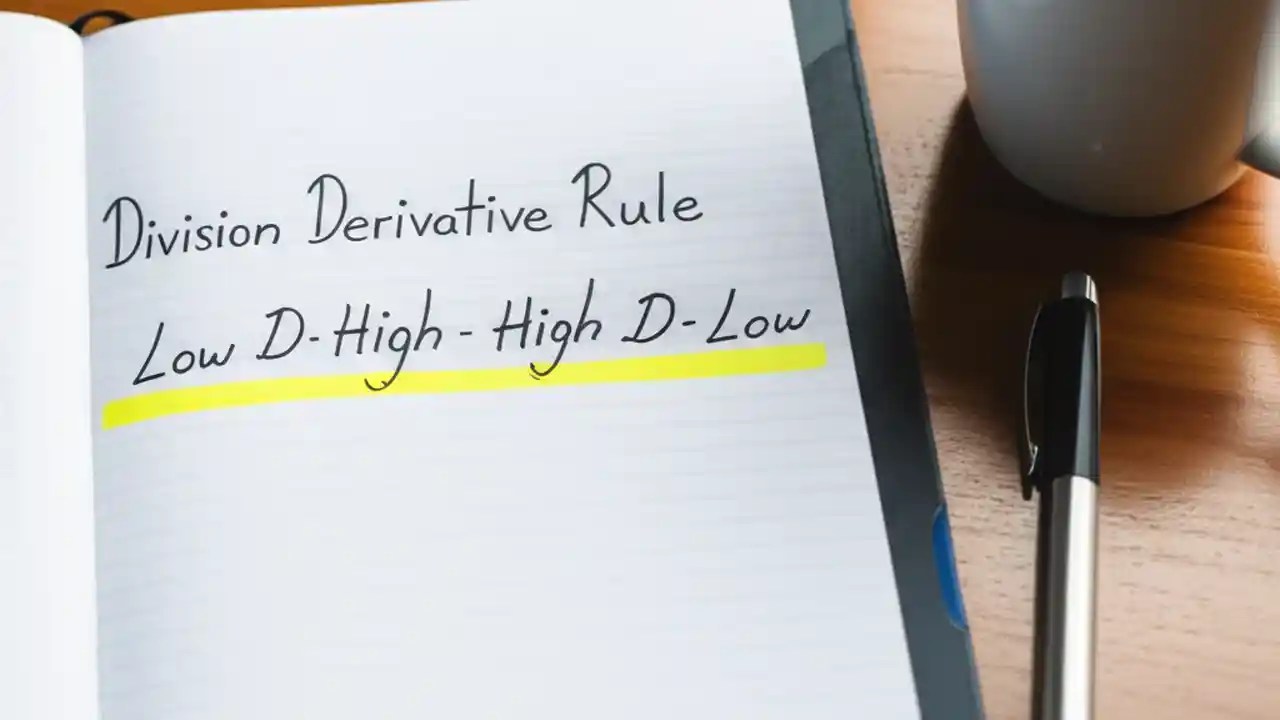 Division Derivative Rule
Low D-High - High D-Low